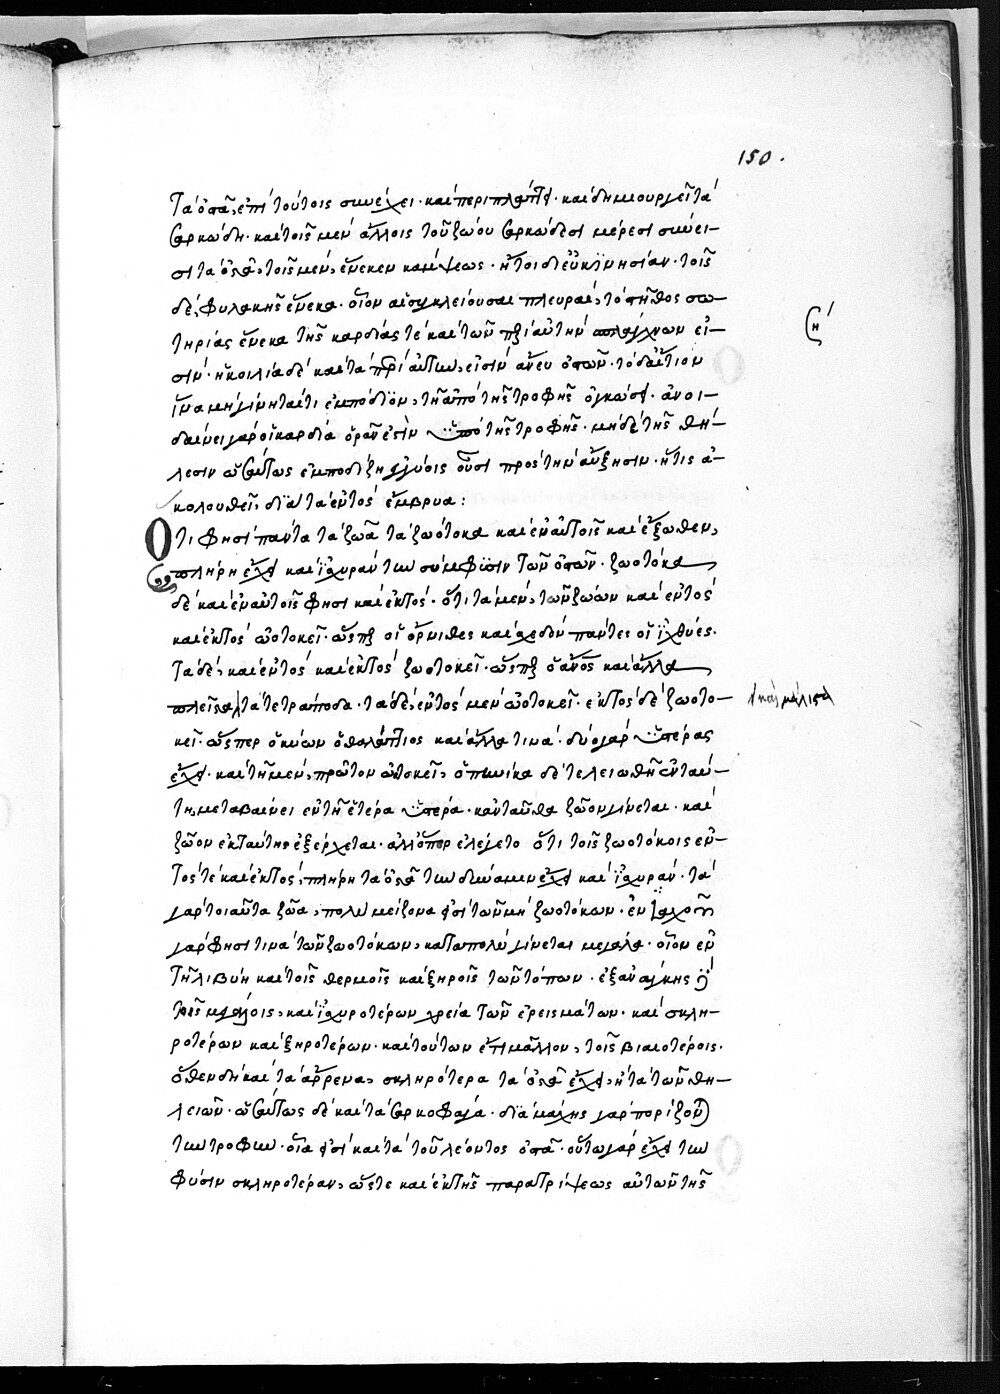 150.
τὰ ὀστᾶ, ἐπὶ τούτοις συνέχει· καὶ περιπλάττει· καὶ δημιουργεῖ τὰ
σαρκώδη· καὶ τοῖς μὲν ἄλλοις τοῦ ζώου σαρκώδεσι μέρεσι σύνει-
σι τὰ ὀστᾶ, τοῖς μὲν, ἕνεκεν κάμψεως· ἤτοι δι' εὐκινησίαν· τοῖς
δὲ, φυλακῆς ἕνεκα· οἷον αἱ συγκλείουσαι πλευραὶ, τὸ στῆθος σω-
τηρίας ἕνεκα τῆς καρδίας τὲ καὶ τῶν περὶ αὐτὴν σπλάγχνων εἰ-
η´
σίν· ἡ κοιλία δὲ καὶ τὰ περὶ αὐτὴν, εἰσὶν ἄνευ ὀστῶν· τὸ δ' αἴτιον
ἵνα μὴ γίνηταί τι ἐμπόδιον, τῆ ἀπὸ τῆς τροφῆς ὀγκώσει· ἀνοι-
δαίνει γὰρ ἡ καρδία ὅταν ἐστὶν ὑπὸ τῆς τροφῆς· μὴ δὲ τῆς θη-
λεσιν ὡσαύτως ἐμποδίζη φύσις οὖσι πρὸς τὴν αὔξησιν· ἥτις ἀ-
κολουθεῖ, διὰ τὰ ἐντὸς ἔμβρυα:
Ὅτι φησὶ πάντα τὰ ζῶα τὰ ζωοτόκα καὶ ἐν αὐτοῖς καὶ ἔξωθεν,
πλήρη ἔχει καὶ ἰσχυρὰν τὴν σύμφυσιν τῶν ὀστῶν· ζωοτόκα
δὲ καὶ ἐν αὐτοῖς φησι καὶ ἐκτός· ὅτι τὰ μὲν, τῶν ζώων καὶ ἐντὸς
καὶ ἐκτὸς ὠοτοκεῖ· ὥσπερ οἱ ὄρνιθες καὶ σχεδὸν πάντες οἱ ἰχθύες·
τὰ δὲ, καὶ ἐντὸς καὶ ἐκτὸς ζωοτοκεῖ· ὥσπερ ὁ ἄνος καὶ ἄλλα
πλεῖστα τὰ τετράποδα· τὰ δὲ, ἐντὸς μὲν ὠοτοκεῖ· ἐκτὸς δὲ ζωοτο-
καὶ μάλιστα
κεῖ· ὥσπερ ὁ κύων ὁ θαλάττιος καὶ ἄλλα τινά· δύο γὰρ ὑστέρας
ἔχει· καὶ τῆ μὲν, πρῶτον ὠοτοκεῖ, ὁπηνίκα δὲ τελειωθῆ ἐν ταύ-
τη, μεταβαίνει ἐν τῆ ἑτέρα ὑστέρα· κἀνταῦθα ζῶον γίνεται· καὶ
ζῶον ἐκ ταύτης ἐξέρχεται· ἀλλ' ὅπερ ἐλέγετο ὅτι τοῖς ζωοτόκοις ἐν-
τός τε καὶ ἐκτὸς, πλήρη τὰ ὀστᾶ τὴν δύναμιν ἔχει καὶ ἰσχυράν· τὰ
γὰρ τοιαῦτα ζῶα, πολὺ μείζονα ἐστὶ τῶν μὴ ζωοτόκων· ἐνιαχοῦ
γάρ φησι τινὰ τῶν ζωοτόκων, καταπολὺ γίνεται μεγάλα· οἷον ἐν
τῆ λιβύη καὶ τοῖς θερμοῖς καὶ ξηροῖς τῶν τόπων· ἐξ ἀνάγκης γὰρ
τοῖς μεγάλοις, καὶ ἰσχυροτέρων χρεία τῶν ἐρεισμάτων· καὶ σκλη-
ροτέρων καὶ ξηροτέρων· καὶ τούτων ἔτι μᾶλλον, τοῖς βιαιοτέροις·
ὅθεν δὴ καὶ τὰ ἄρρενα, σκληρότερα τὰ ὀστᾶ ἔχει, ἢ τὰ τῶν θη-
λειῶν· ὡσαύτως δὲ καὶ τὰ σαρκοφάγα· διὰ μάχης γὰρ πορίζονται
τὴν τροφήν· οἷα ἐστὶ καὶ τὰ τοῦ λέοντος ὀστᾶ· οὕτω γὰρ ἔχει τὴν
φύσιν σκληροτέραν, ὥστε καὶ ἐκ τῆς παρατρίψεως αὐτῶν τῆς